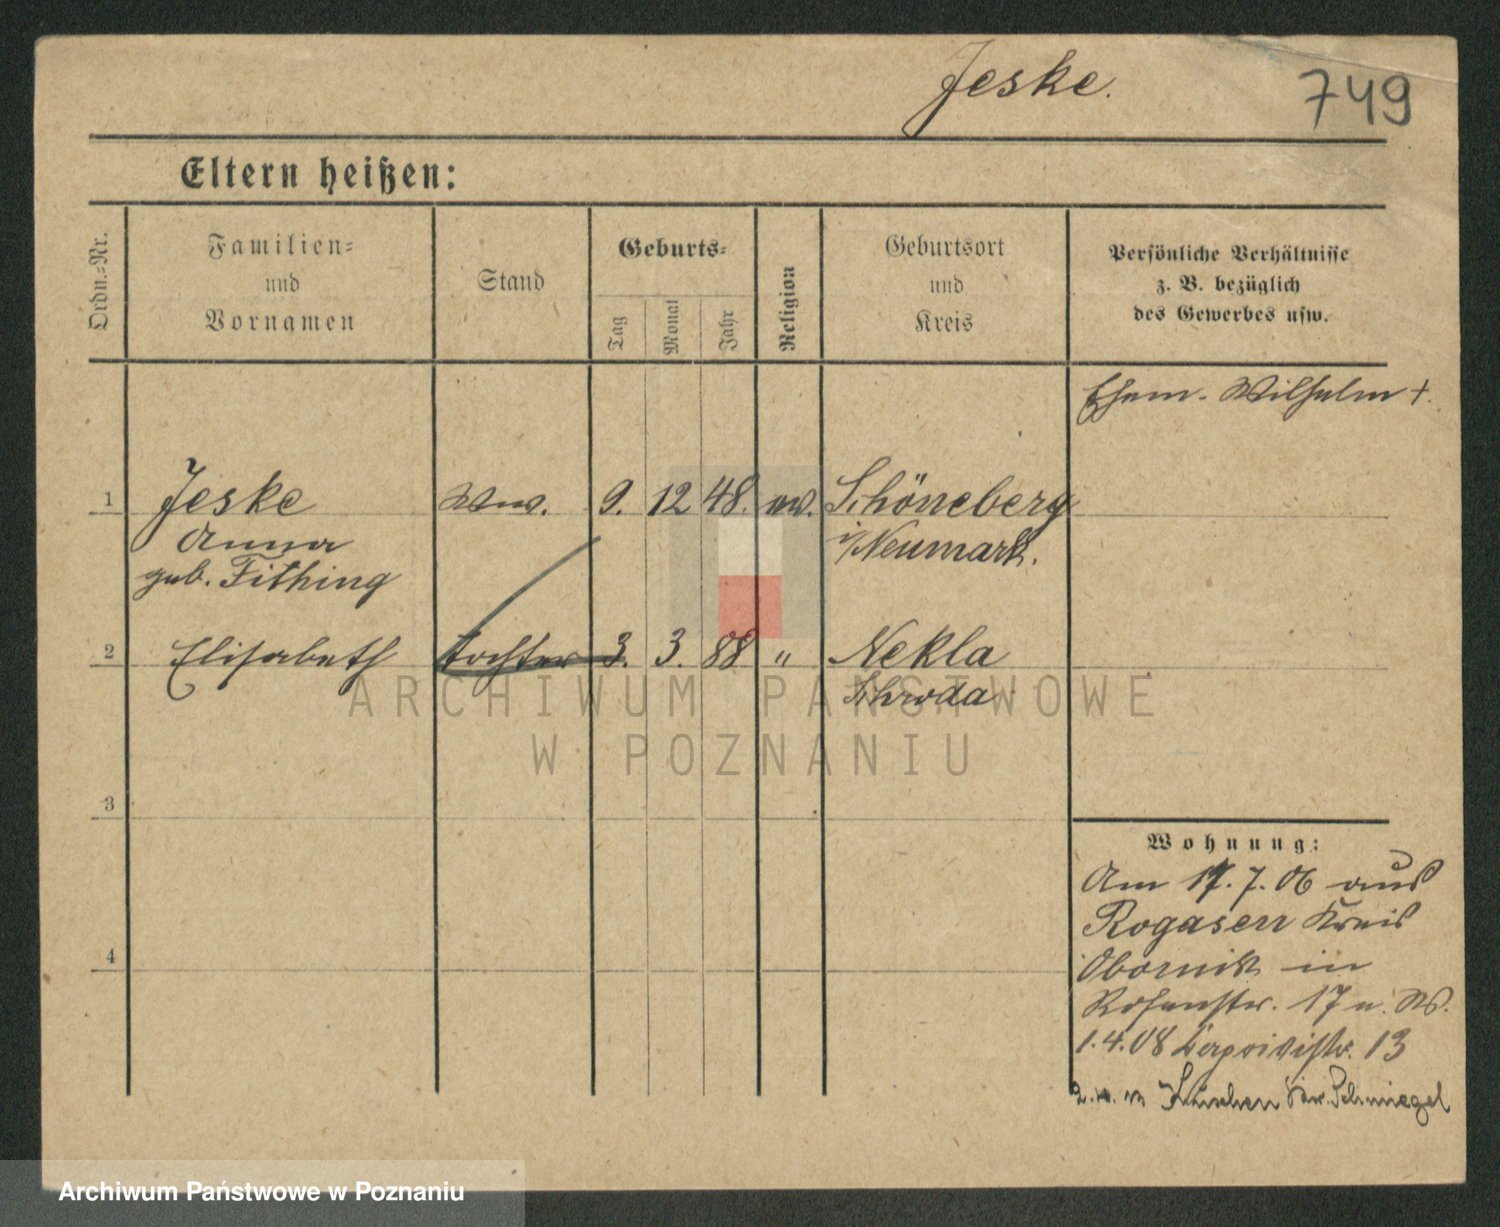 Jeske.
749
Eltern heißen:
Ordn.-Nr.
Familien-
und
Vornamen
Stand
Geburts-
Tag
Monat
Jahr
Religion
Geburtsort
und
Kreis
Persönliche Verhältnisse
z. B. bezüglich
des Gewerbes usw.
Ehem. Wilhelm +.
1 Jeske Ww. 9. 12 48. ev. Schöneberg
Anna i/Neumark.
geb. Fithing
2 Elisabeth Tochter 3. 3. 88 " Nekla
Schroda
ARCHIWUM PAŃSTWOWE
W POZNANIU
3
Wohnung:
Am 17. 7. 06 aus
Rogasen Kreis
4
Obornik in
Rosenstr. 17 u. W.
1.4.08 13
Kr. Schmiegel
Archiwum Państwowe w Poznaniu